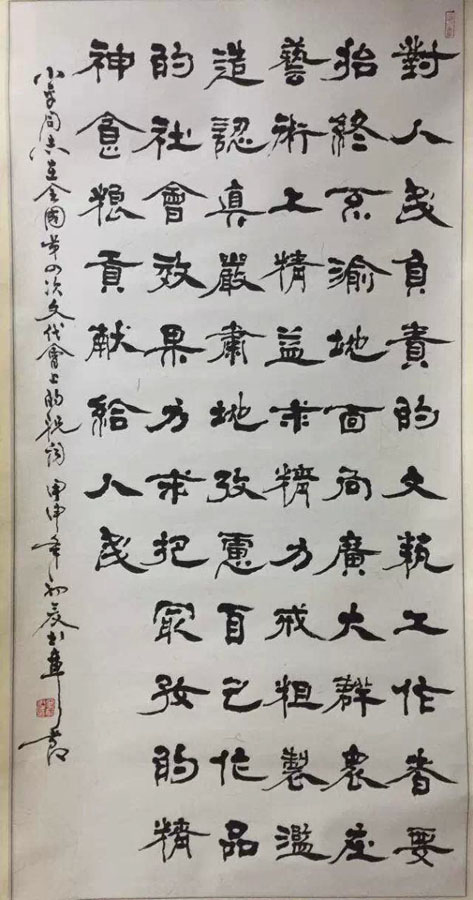 對人民負責的文藝工作者要
始終不渝地面向廣大群衆在
藝術上精益求精力戒粗製濫
造認真嚴肅地考慮自己作品
的社會效果力求把最好的精
神食粮貢献給人民
小平同志在全國第四次文代會上的祝詞 甲申年初夏